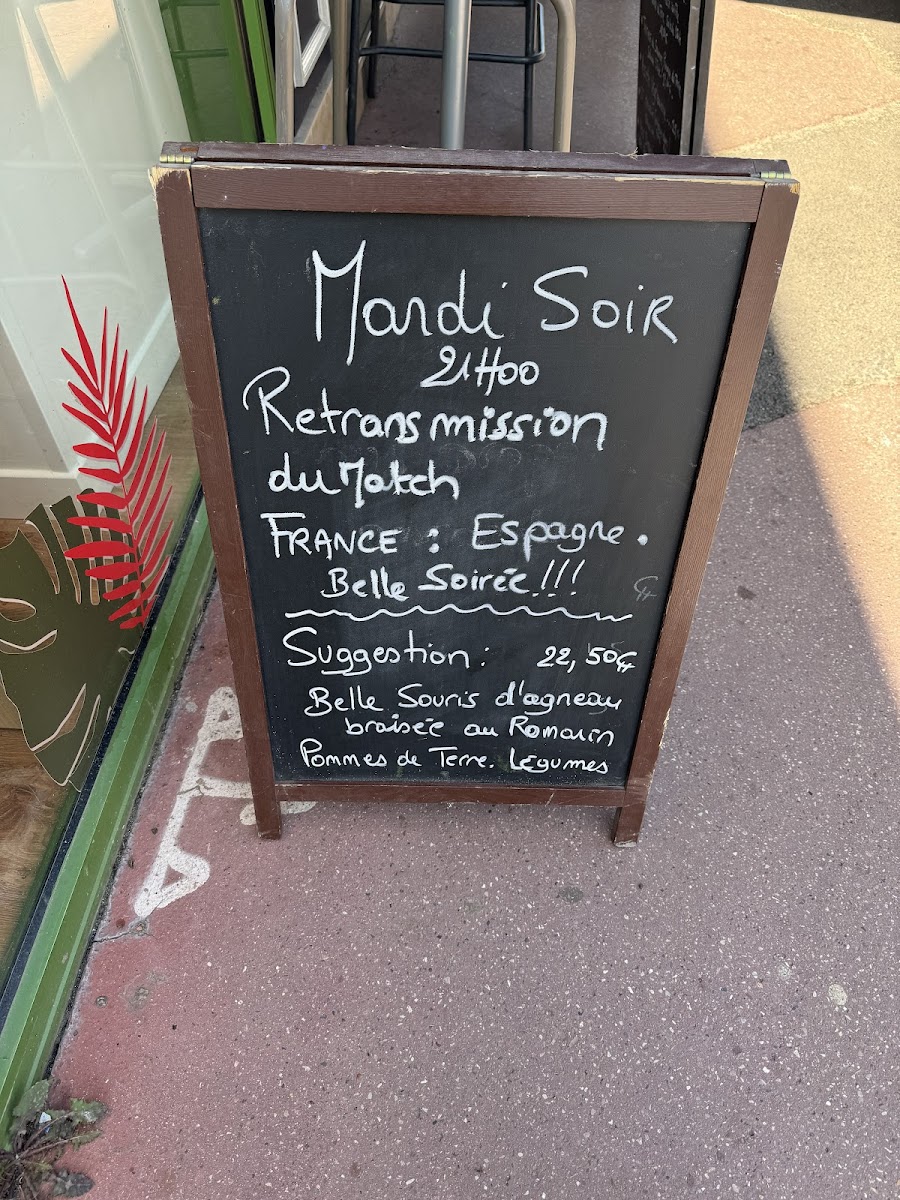 Mardi Soir
21H00
Retransmission
du Match
FRANCE : Espagne.
Belle Soirée !!!
Suggestion : 22,50€
Belle Souris d'agneau
braisée au Romarin
Pommes de Terre. Légumes